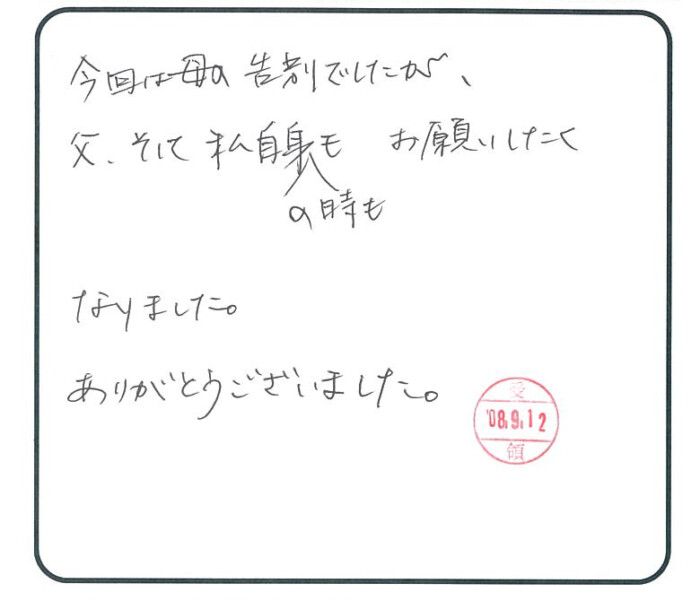 今回は母の告別でしたが、
父、そして私自身も お願いしたく
の時も
なりました。
ありがとうございました。
受
'08.9.12
領